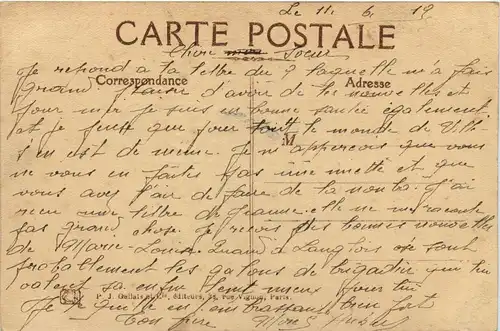 Le 11 6 19
CARTE POSTALE
Chère soeur
Je repond a ta lettre du 9 laquelle m'a fais
Correspondance
Adresse
grand plaisir d'avoir de tes nouvelles et
pour moi je suis en bonne santée egalement
et je pense que pour tout le monde de
M
s'en est de meme. Je m'apercois que vous
ne vous en faites pas une miette et que
vous avez l'air de faire de la nouba. J'ai
recu une lettre de Jeanne elle ne me raconte
pas grand chose je recois des bonnes nouvelles
de Marie-Louise. Quand à Langlois ce sont
probablement les galons de brigadier qui lui
tant mieux pour lui
P. J. Gallais et Cie, éditeurs, 38, rue Vignon, Paris.
Je te quitte en t'embrassant bien fort
Ton frère